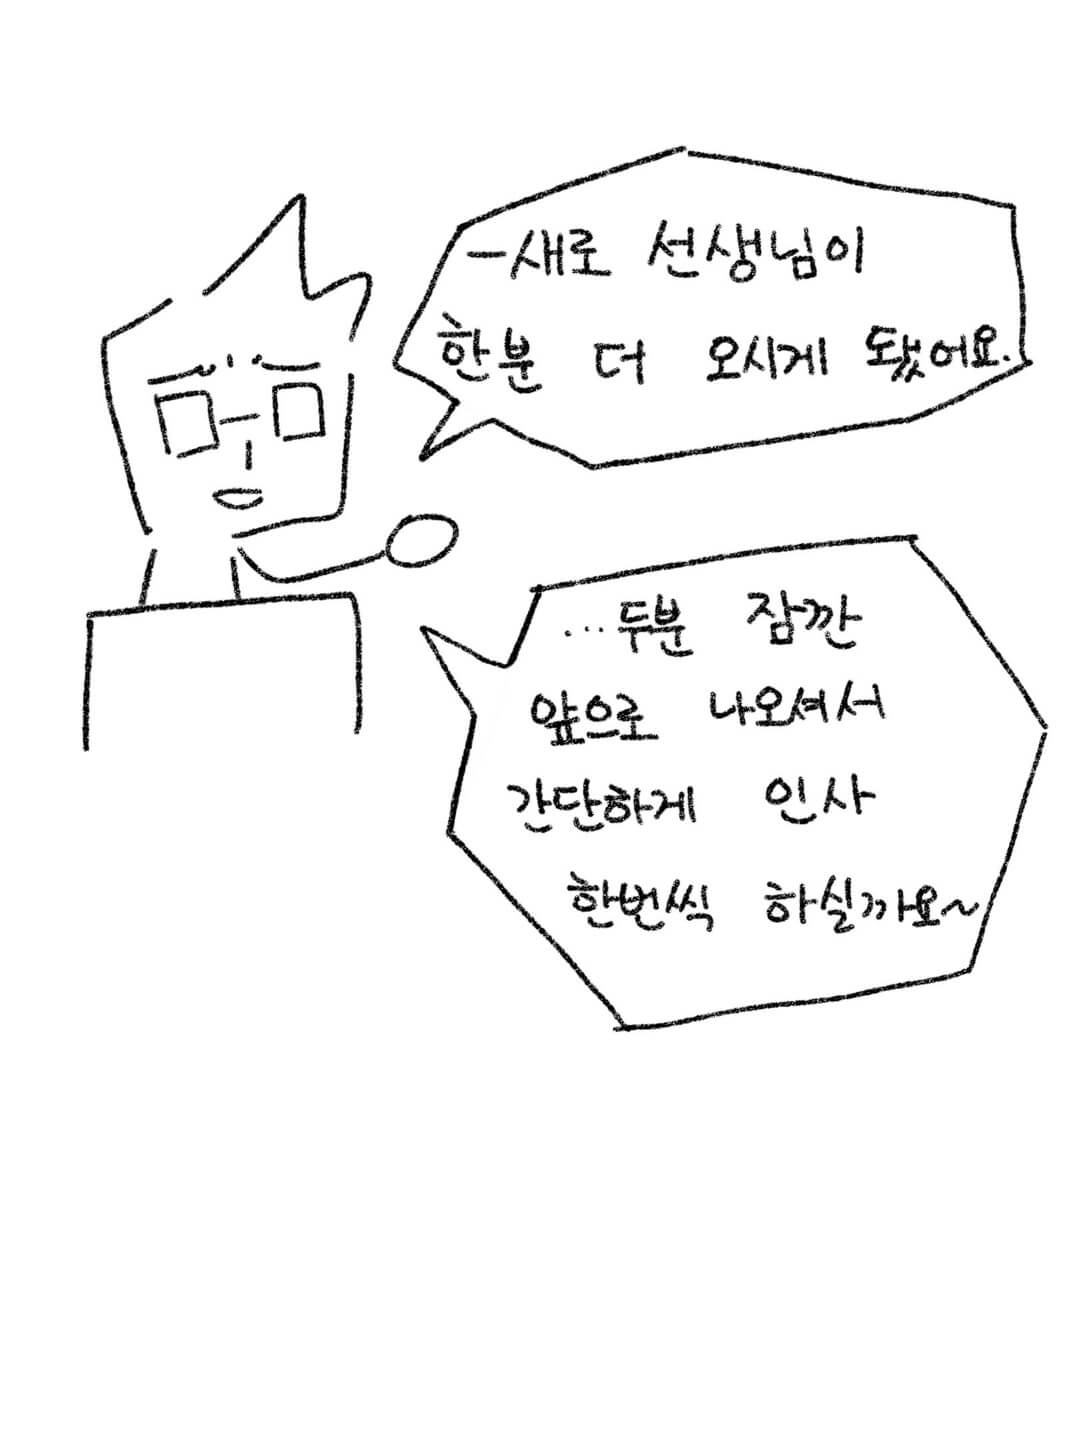 -새로 선생님이
한분 더 오시게 됐어요.
...두분 잠깐
앞으로 나오셔서
간단하게 인사
한번씩 하실까요~